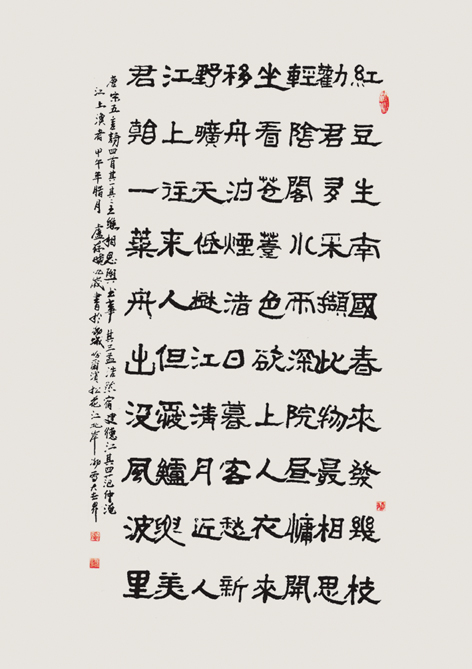 紅豆生南國春來發幾枝
勸君多采擷此物最相思
輕陰閣小雨深院晝慵開
坐看蒼薹色欲上人衣來
移舟泊煙渚日暮客愁新
野曠天低樹江清月近人
江上往來人但愛鱸魚美
君看一葉舟出沒風波里
唐宋五言詩四首其一其二王維相思與書事其三孟浩然宿建德江其四范仲淹
江上漁者甲午年臘月盧書於冰城哈爾濱松花江北岸